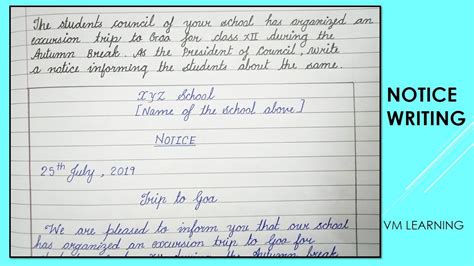 The students council of your school has organized an
excursion trip to Goa for class XII during the
Autumn Break. As the President of Council, write
a notice informing the students about the same.
XYZ School
[Name of the school above]
NOTICE
25th July, 2019
Trip to Goa
"We are pleased to inform you that our school
has organized an excursion trip to Goa for
during the Autumn break
NOTICE
WRITING
VM LEARNING